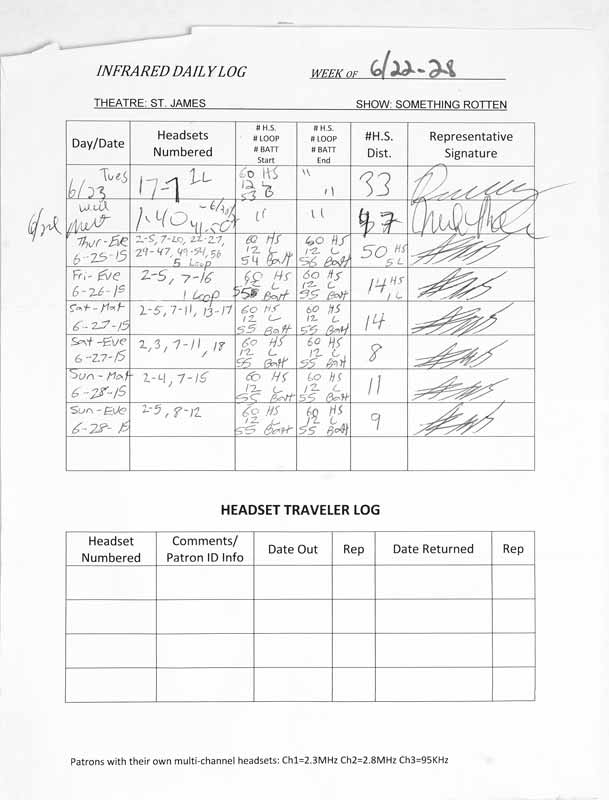 INFRARED DAILY LOG WEEK OF 6/22-28
THEATRE: ST. JAMES SHOW: SOMETHING ROTTEN
Day/Date Headsets Numbered # H.S. # LOOP # BATT Start # H.S. # LOOP # BATT End #H.S. Dist. Representative Signature
Tues 6/23 17-1 1L 60 HS 12 L 53 B " " 33
1-40 " "
Thur-Eve 6-25-15 2-5, 7-20, 22-27, 29-47, 49-54, 56 5 Loop 60 HS 12 L 54 Batt 60 HS 12 L 55 Batt 50 HS 5 L
Fri-Eve 6-26-15 2-5, 7-16 1 Loop 60 HS 12 L 55 Batt 60 HS 12 L 55 Batt 14 HS 1 L
Sat-Mat 6-27-15 2-5, 7-11, 13-17 60 HS 12 L 55 Batt 60 HS 12 L 55 Batt 14
Sat-Eve 6-27-15 2, 3, 7-11, 18 60 HS 12 L 55 Batt 60 HS 12 L 55 Batt 8
Sun-Mat 6-28-15 2-4, 7-15 60 HS 12 L 55 Batt 60 HS 12 L 55 Batt 11
Sun-Eve 6-28-15 2-5, 8-12 60 HS 12 L 55 Batt 60 HS 12 L 55 Batt 9
HEADSET TRAVELER LOG
Headset Numbered Comments/ Patron ID Info Date Out Rep Date Returned Rep
Patrons with their own multi-channel headsets: Ch1=2.3MHz Ch2=2.8MHz Ch3=95KHz